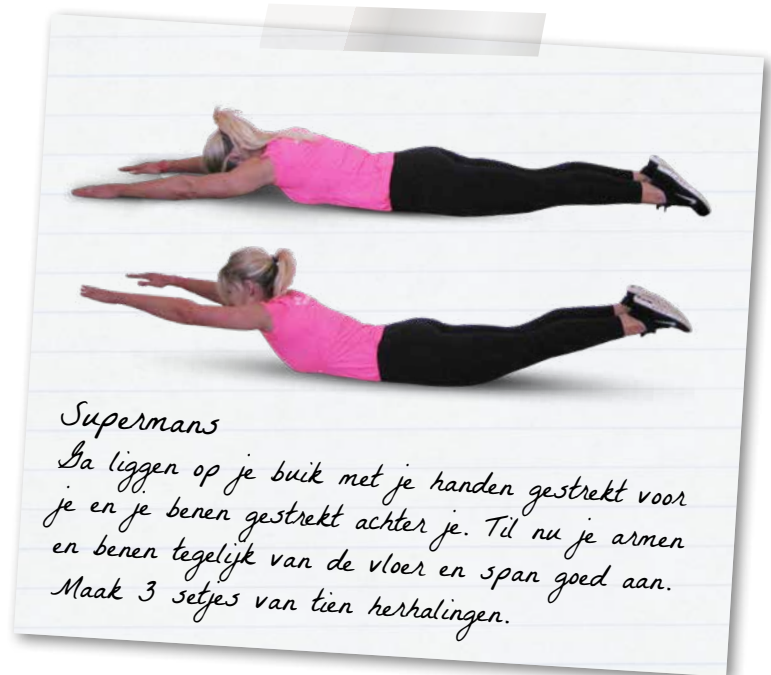 Supermans
Ga liggen op je buik met je handen gestrekt voor
je en je benen gestrekt achter je. Til nu je armen
en benen tegelijk van de vloer en span goed aan.
Maak 3 setjes van tien herhalingen.